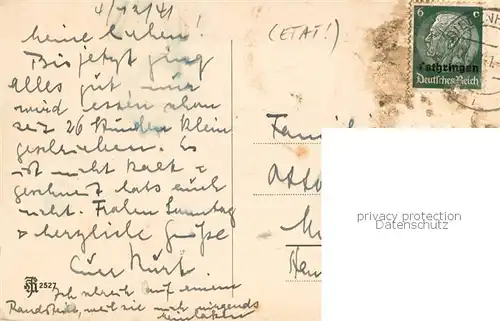 4/12/41
meine Lieben!
Bis jetzt ging
alles gut, nur
wird essen schon
seit 26 Stunden klein
geschrieben. Es
ist nicht kalt &
geschneit hats auch
nicht. Frohen Sonntag
& herzliche Grüße
Euer Kurt.
Ich schreib auf einem
Randstein, weil sie mich nirgends
(ETAT!)
6 6
Lothringen
Deutsches Reich
Famil
Otto
2527
privacy protection
Datenschutz